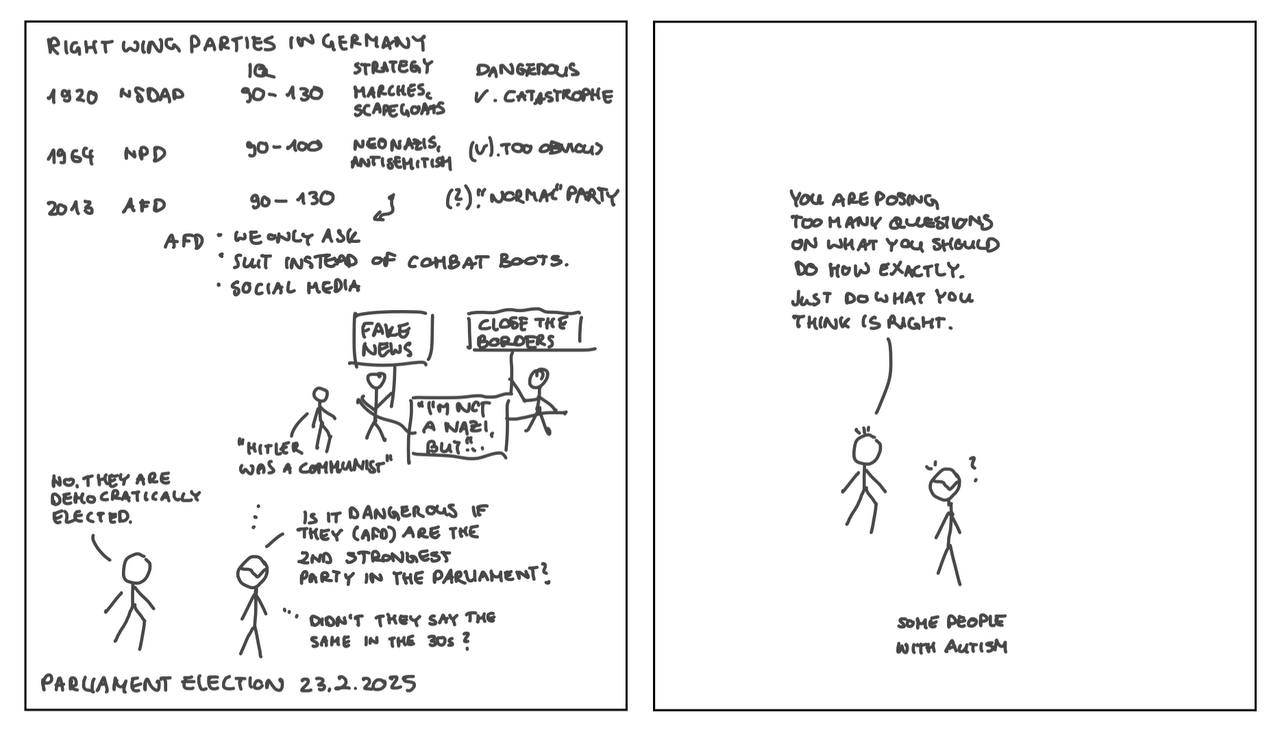 RIGHT WING PARTIES IN GERMANY
IQ STRATEGY DANGEROUS
1920 NSDAD 90-130 MARCHES, SCAPEGOATS V. CATASTROPHE
1964 NPD 90-100 NEONAZIS, ANTISEMITISM (V). TOO OBVIOUS
2013 AFD 90-130 (?). "NORMAL" PARTY
AFD • WE ONLY ASK
• SUIT INSTEAD OF COMBAT BOOTS.
• SOCIAL MEDIA
FAKE
NEWS
CLOSE THE
BORDERS
"I'M NOT
A NAZI,
BUT"...
"HITLER
WAS A COMMUNIST"
NO, THEY ARE
DEMOCRATICALLY
ELECTED.
IS IT DANGEROUS IF
THEY (AFD) ARE THE
2ND STRONGEST
PARTY IN THE PARLIAMENT?
... DIDN'T THEY SAY THE
SAME IN THE 30s?
PARLIAMENT ELECTION 23.2.2025
YOU ARE POSING
TOO MANY QUESTIONS
ON WHAT YOU SHOULD
DO HOW EXACTLY.
JUST DO WHAT YOU
THINK IS RIGHT.
?
SOME PEOPLE
WITH AUTISM